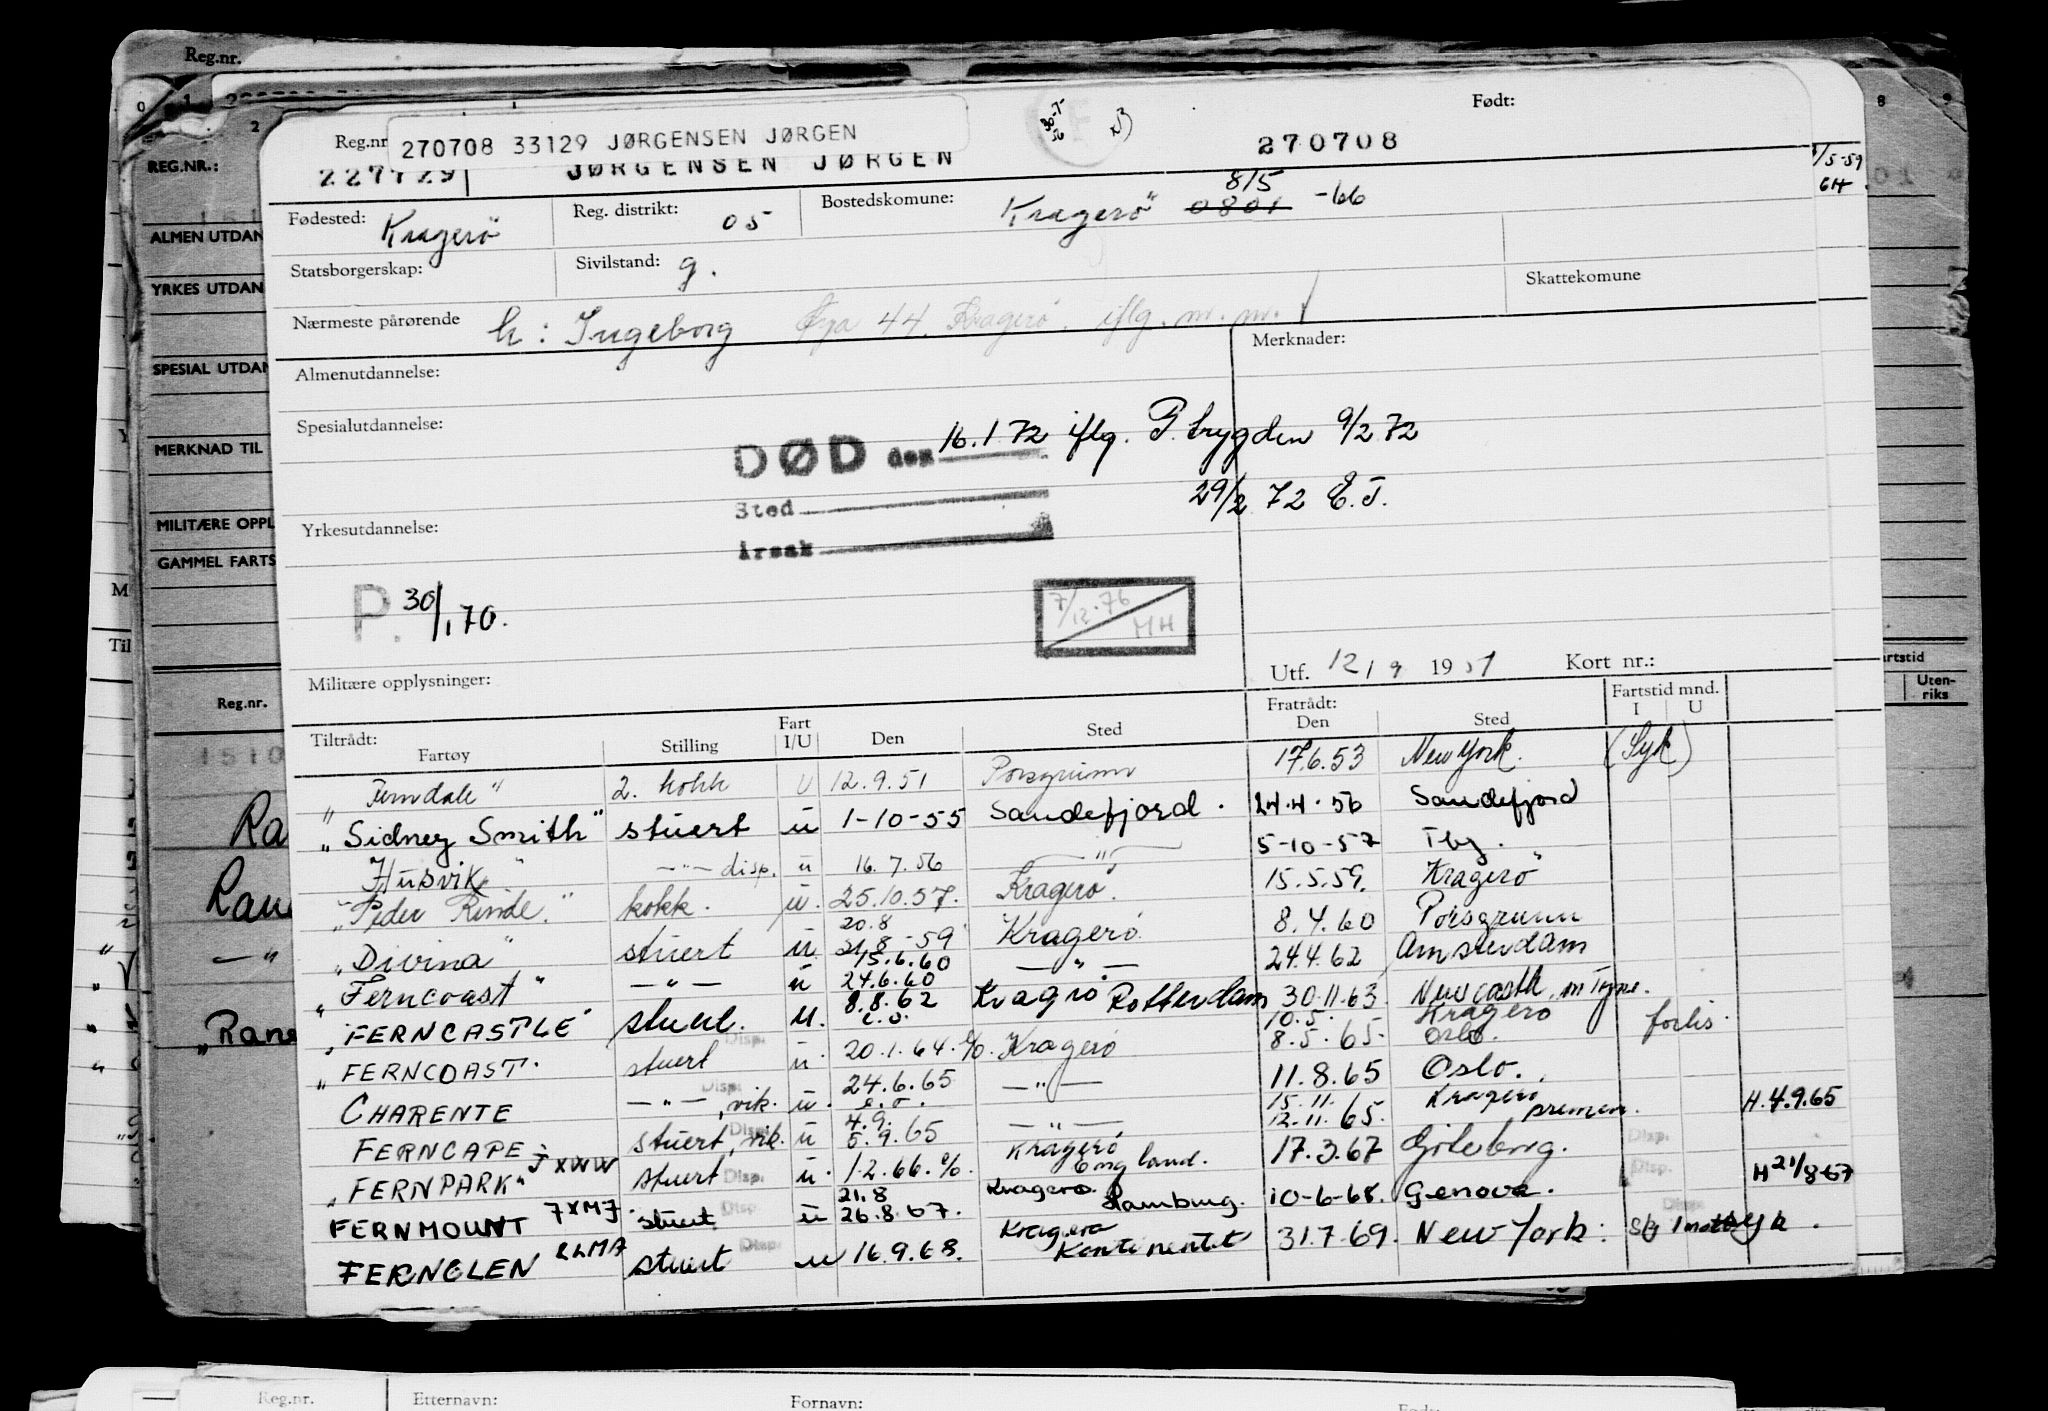 Reg.nr.
REG.NR.:
ALMEN UTDAN
YRKES UTDAN
SPESIAL UTDAN
MERKNAD TIL
MILITÆRE OPPL
GAMMEL FARTS
Reg.nr.
1510
Til
Uten-
riks
Reg.nr 270708 33129 JØRGENSEN JØRGEN Født:
JØRGENSEN JØRGEN 270708
Fødested: Kragerö Reg. distrikt: 05 Bostedskomune: Kragerö 0801 815 -66
Statsborgerskap: Sivilstand: g. Skattekomune
Nærmeste pårørende h: Ingeborg Øya 44. Kragerö. iflg. m.m.
Almenutdannelse: Merknader:
Spesialutdannelse:
DØD den 16.1.72 iflg. P. trygden 9/2 72
Sted 29/2 72 E.J.
Årsak
Yrkesutdannelse:
P. 30/1 70.
7/12.76 MH
Militære opplysninger: Utf. 12/9 1951 Kort nr.:
Tiltrådt: Fart Fratrådt: Fartstid mnd.
Fartøy Stilling I/U Den Sted Den Sted I U
"Ferndale" 2. kokk U 12.9.51 Porsgrunn 17.6.53 New York. (Syk)
"Sidney Smith" stuert u 1-10-55 Sandefjord. 24.4.56 Sandefjord
Husvik" —"— disp. u 16.7.56 —"— 5-10-57 Tbg.
"Peder Rinde." kokk. u. 25.10.57. Kragerö. 15.5.59. Kragerö
"Divina" stuert u 20.8 21.8.-59 Kragerö 8.4.60 Porsgrunn
"Ferncoast" —"— u 15.6.60 24.6.60 —"— 24.4.62 Amsterdam
"FERNCASTLE" stuert. u. 8.8.62 Kragrö Rotterdam 30.11.63. Newcastle
"FERNCOAST. stuert Disp. u. 20.1.64. Kragerö 10.5. 8.5.65. Kragerö Oslo. forlis.
CHARENTE —"—, vik. Disp. u. 24.6.65 —"— 11.8.65 Oslo.
FERNCAPE stuert, vik. Disp. u 4.9. 5.9.65 —"— 15.11. 12.11.65. Kragerö H.4.9.65
"FERNPARK" JXWW stuert Disp. u. 1.2.66. Kragerö England. 17.3.67 Göteborg. Disp.
FERNMOUNT JXMJ stuert Disp u 21.8 26.8.67. Kragerö Hamburg. 10-6-68. Genova. Disp. H 21/8-67
FERNGLEN LLMA stuert Disp. u 16.9.68. Kragerö Kontinentet 31.7.69. New York:
Reg.nr. Etternavn: Fornavn: